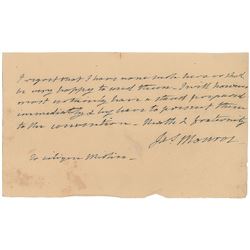 I regret that I have none such here or shd
be very happy to send them. I will however
most certainly have a stand prepared
immediately & beg leave to present them
to the convention. Health & fraternity
Jas Monroe
To citizen